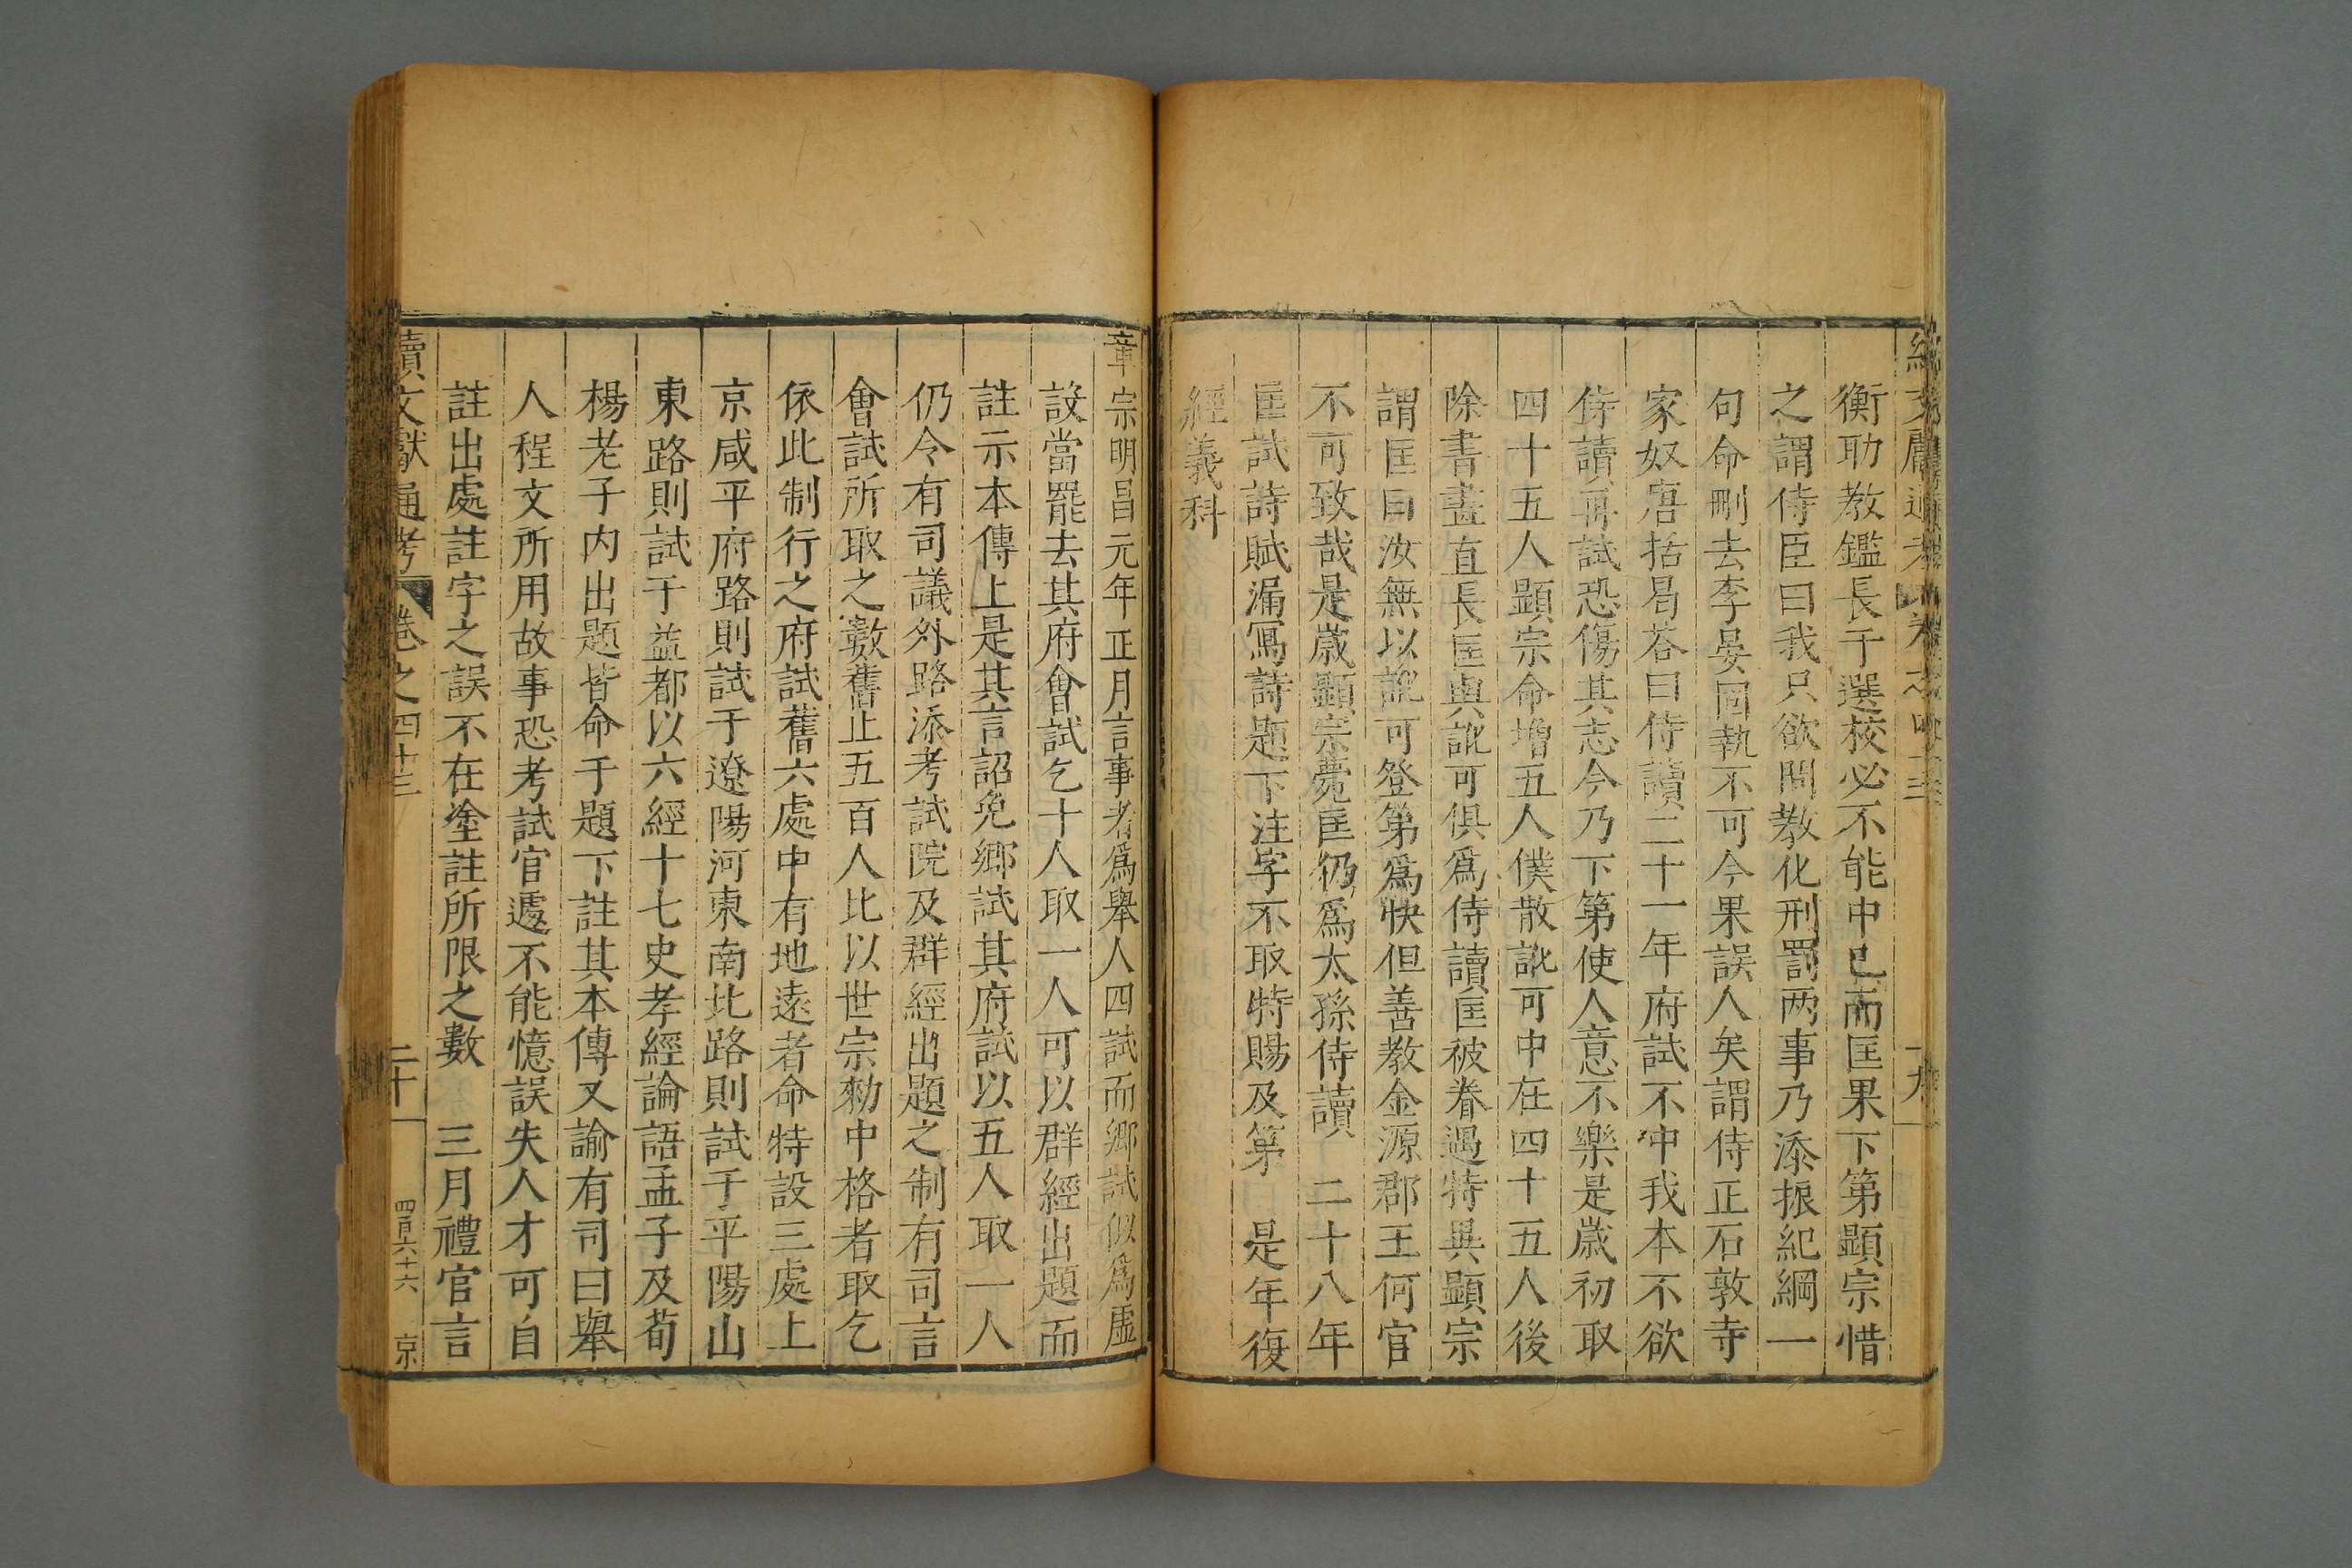 衡助教鑑長于選校必不能中已而匡果下第顯宗惜
之謂侍臣曰我只欲開教化刑罰两事乃添振紀綱一
句命刪去李晏固執不可今果誤人矣謂侍正石敦寺
家奴唐括曷荅曰侍讀二十一年府試不中我本不欲
侍讀再試恐傷其志今乃下第使人意不樂是歲初取
四十五人顯宗命增五人僕散訛可中在四十五人後
除書畫直長匡與訛可俱爲侍讀匡被眷遇特異顯宗
謂匡曰汝無以訛可登第爲快但善教金源郡王何官
不可致哉是歲顯宗薨匡仍爲太孫侍讀 二十八年
匡試詩賦漏寫詩題下注字不取特賜及第 是年復
經義科
章宗明昌元年正月言事者爲舉人四試而鄉試似爲虛
設當罷去其府會試乞十人取一人可以群經出題而
註示本傳上是其言詔免鄉試其府試以五人取一人
仍令有司議外路添考試院及群經出題之制有司言
會試所取之數舊止五百人比以世宗勑中格者取乞
依此制行之府試舊六處中有地遠者命特設三處上
京咸平府路則試于遼陽河東南北路則試于平陽山
東路則試于益都以六經十七史孝經論語孟子及荀
楊老子内出題皆命于題下註其本傳又諭有司曰舉
人程文所用故事恐考試官遽不能憶誤失人才可自
註出處註字之誤不在塗註所限之數 三月禮官言
續文獻通考 卷之四十三 二十 四百六十六 京